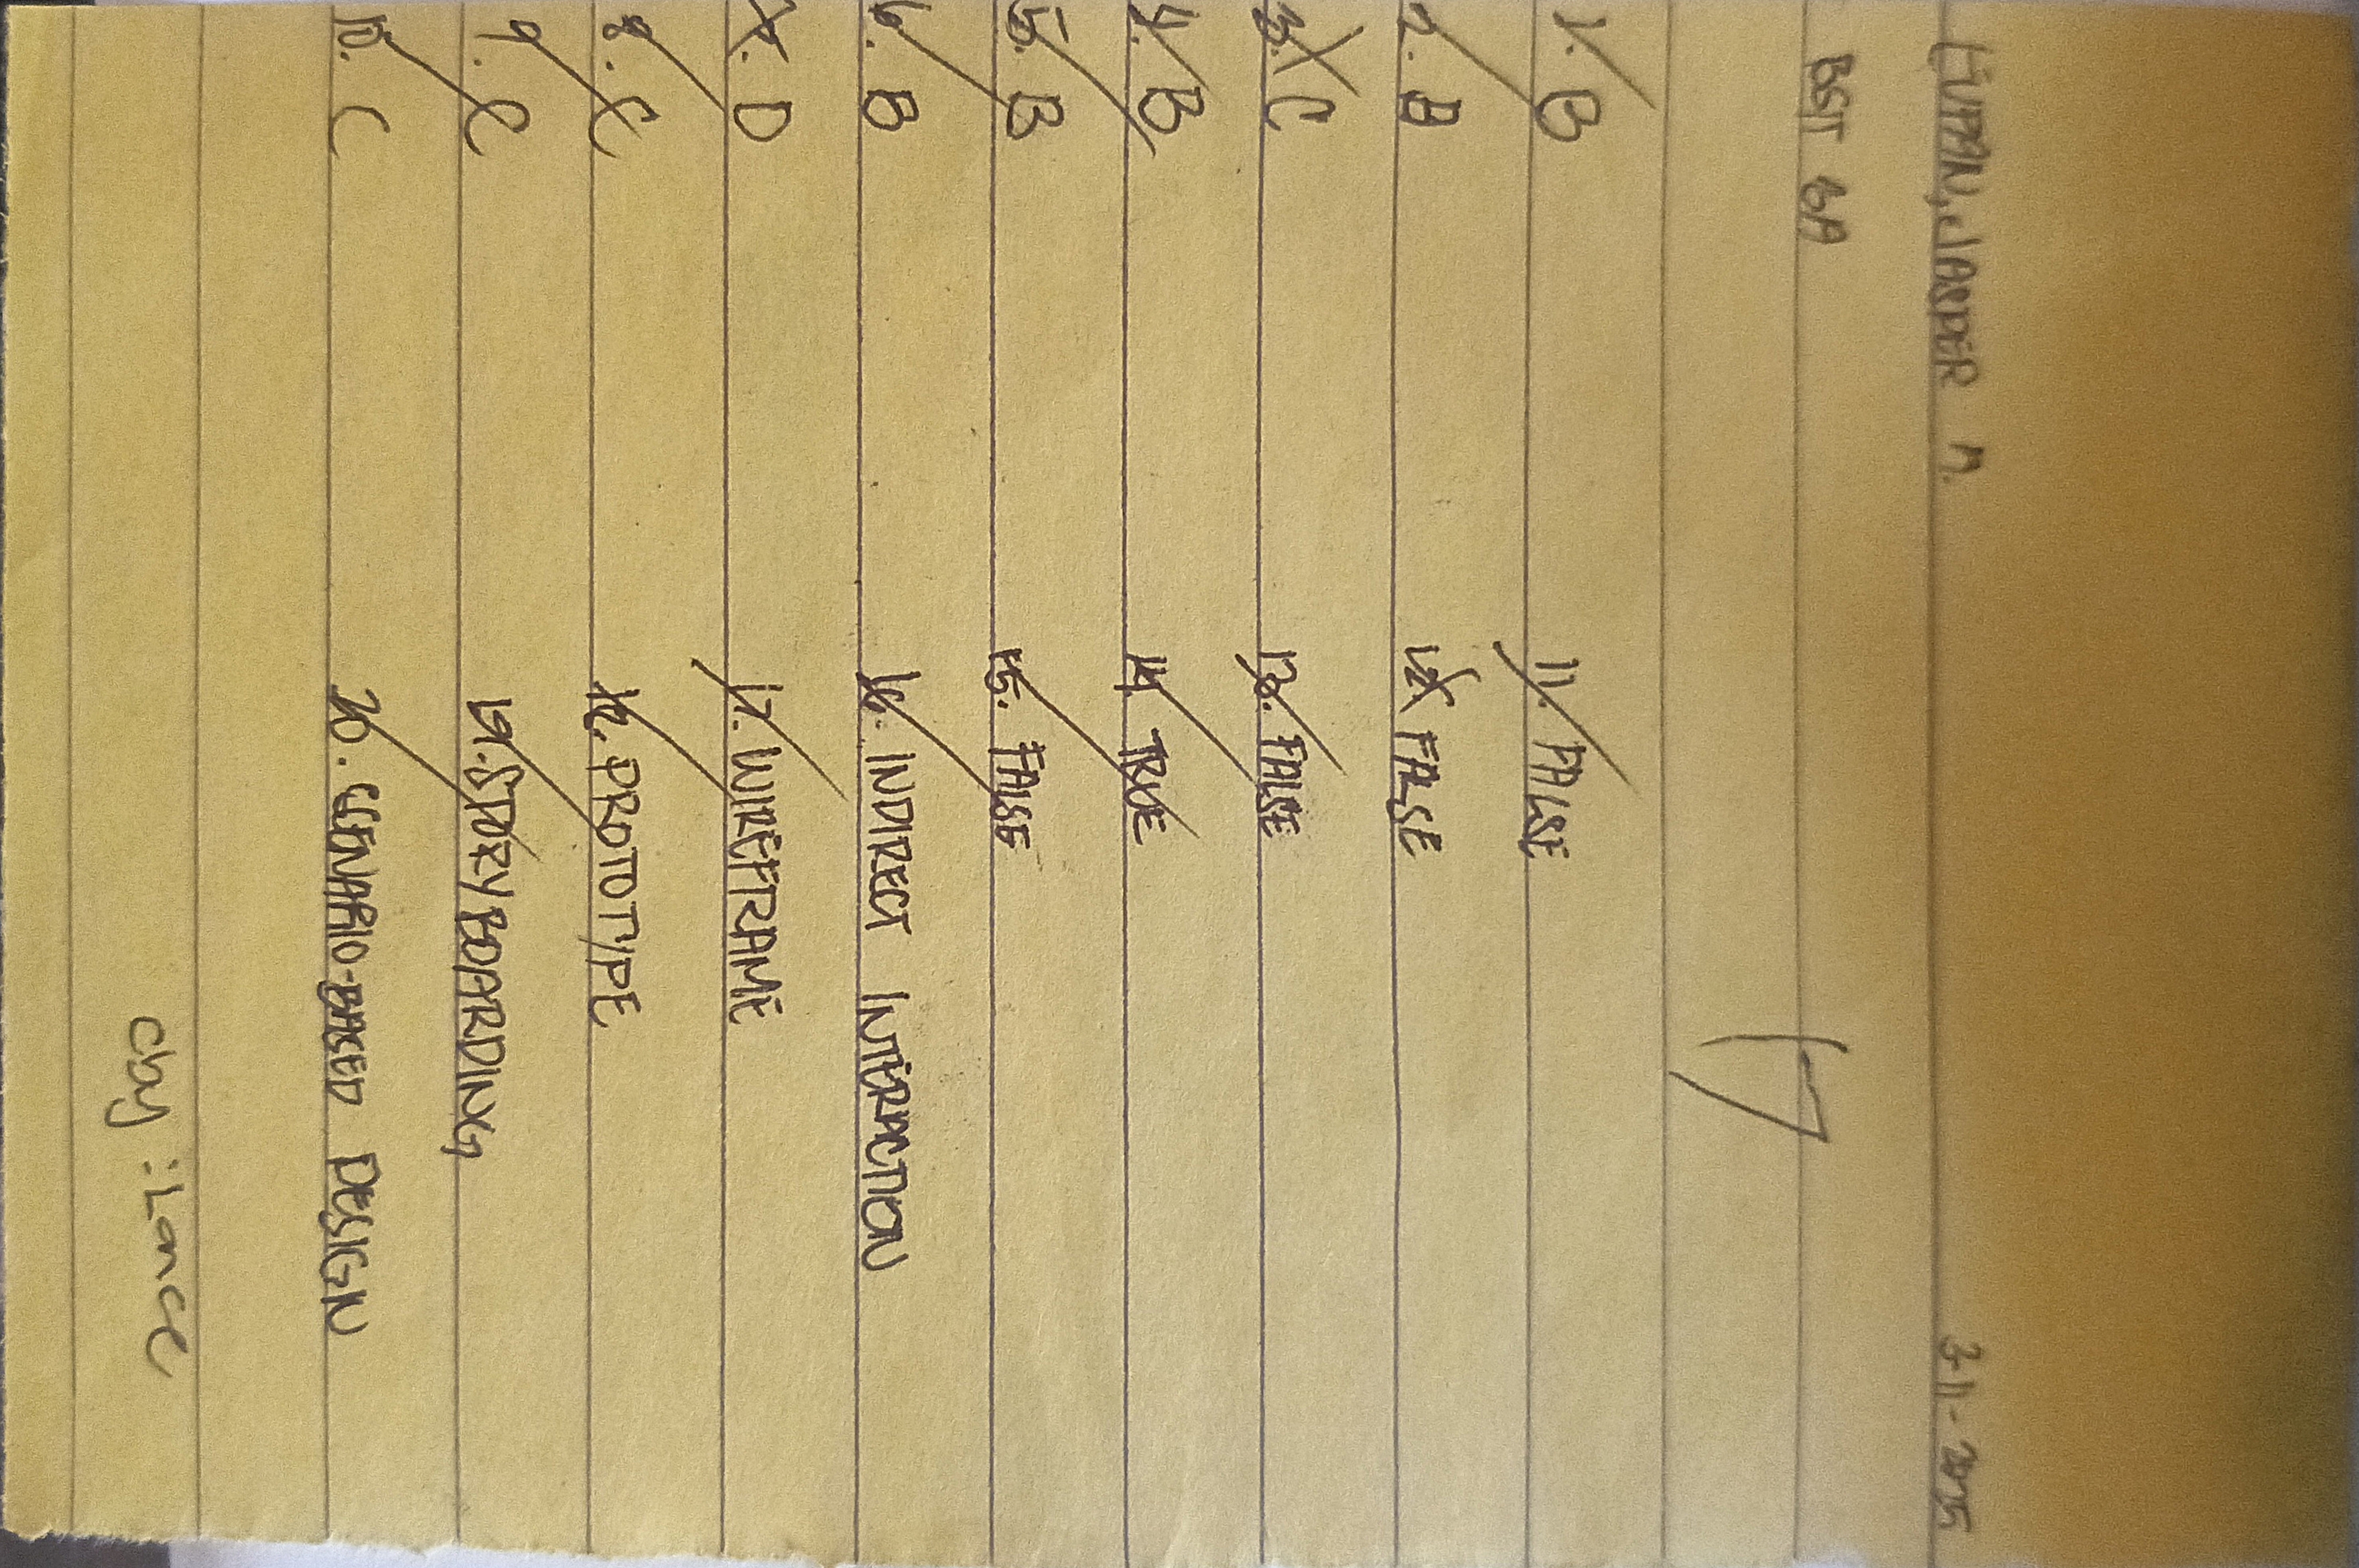 LUPAN, JASPER M. 3-11-2025
BSIT 3A
17
1. B
2. B
3. C
4. B
5. B
6. B
7. D
8. C
9. C
10. C
11. FALSE
12. FALSE
13. FALSE
14. TRUE
15. FALSE
16. INDIRECT INTERACTION
17. WIREFRAME
18. PROTOTYPE
19. STORYBOARDING
20. SCENARIO-BASED DESIGN
cby : Lance